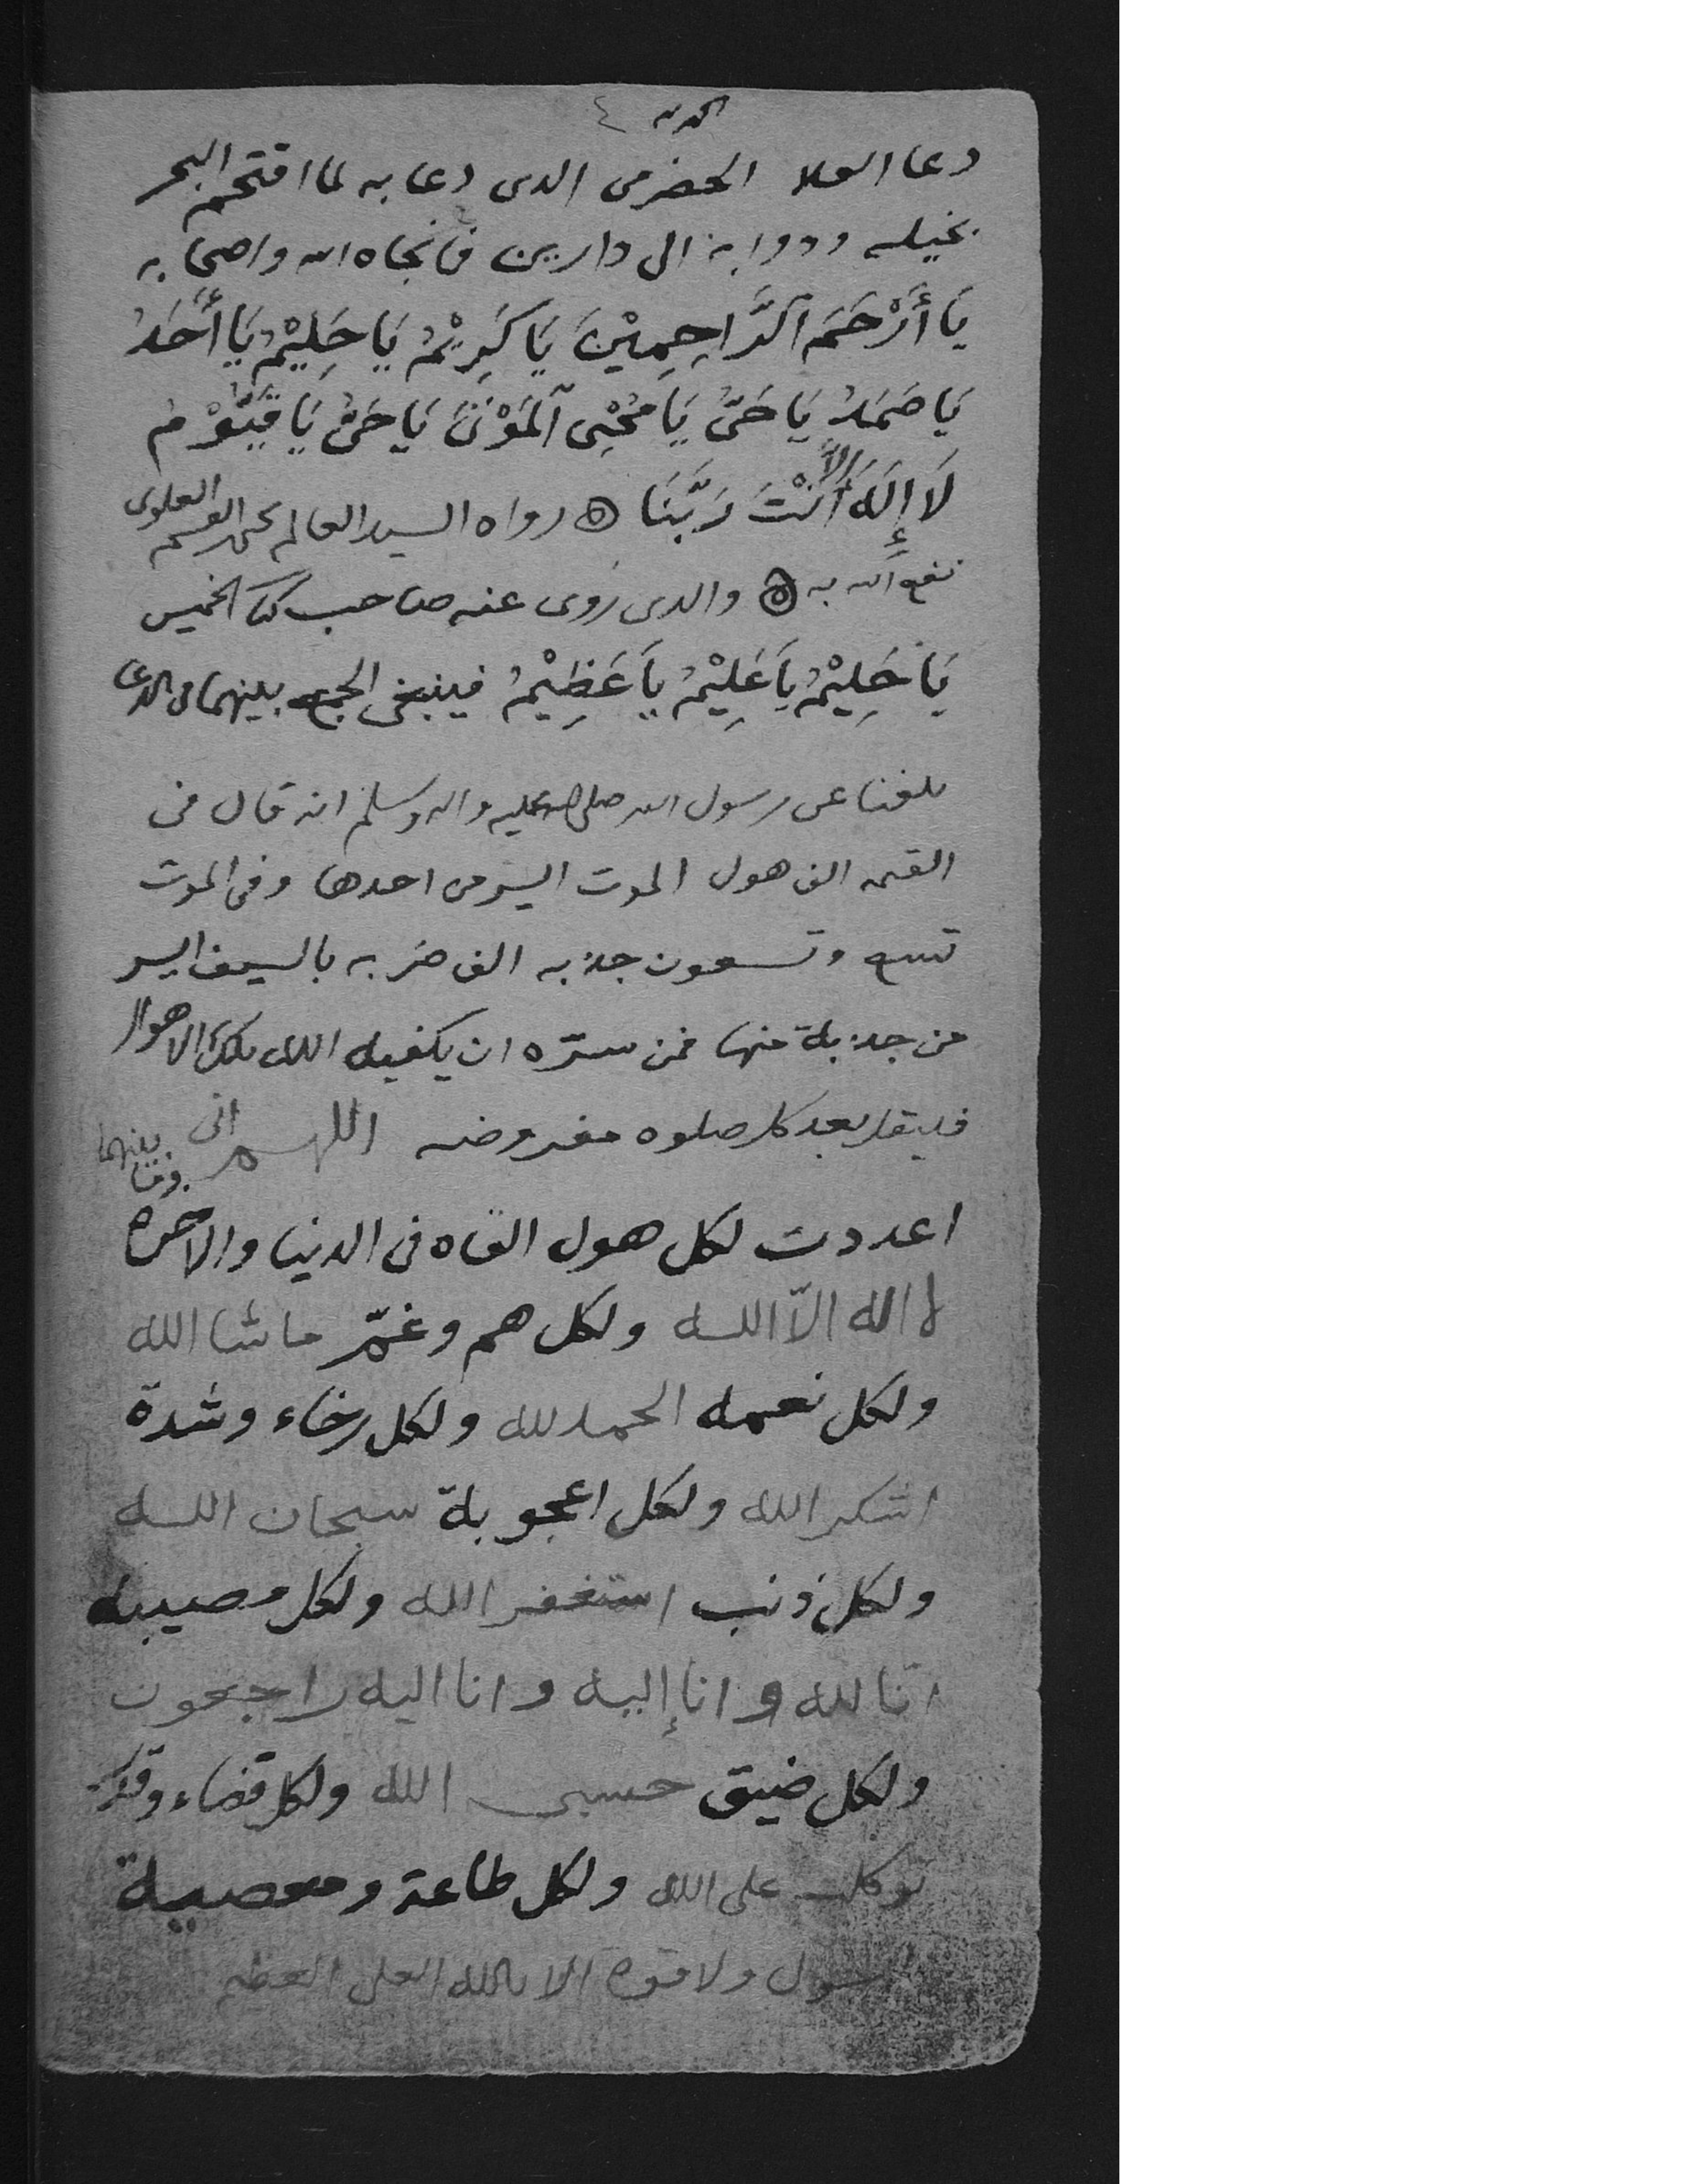 الحمد لله ٤
دعا العلا الحضرمى الدى دعا به لما اقتحم البحر
بخيله ودوابه الى دارين فانجاه الله واصحابه
يَا أَرْحَمَ ٱلرَّاحِمِيْنَ يَا كَرِيْمُ يَا حَلِيْمُ يَا أَحَدُ
يَا صَمَدُ يَا حَىُّ يَا مُحْيِى ٱلمَوْتَى يَا حَىُّ يَا قَيُّوْمُ
لَا إِلَهَ إِلَّا أَنْتَ رَبَّنَا ۞ رواه السيد العالم القسم العلوى
نفع الله به ۞ والدى رَوى عنه صاحب كتا الخميس
يَا حَلِيْمُ يَا عَلِيْمُ يَا عَظِيْمُ فينبغى الجمع بينهما فى الدعا
بلغنا عن رسول الله صلى الله عليه واله وسلم انه قال فى
القيمه الف هول الموت ايسر من احدها وفى الموت
تسع وتسعون جذبه الف ضربه بالسيف ايسر
من جذبة منها فمن سرّه ان يكفيه الله تلك الاهوال
فليقل بعد كل صلوه مفروضه اللهم انى
وما بينهما
اعددت لكل هول القاه فى الدنيا والاخره
لا اله الّا الله ولكل هم وغمّ ما شا الله
ولكل نعمه الحمد لله ولكل رخاء وشدة
اشكر الله ولكل اعجوبة سبحان الله
ولكل ذنب استغفر الله ولكل مصيبه
انّا لله و انا إليه وانا اليه راجعون
ولكل ضيق حسبى الله ولكل قضاء وقدر
توكلت على الله ولكل طاعة ومعصية
لا حول ولا قوة الا بالله العلى العظيم